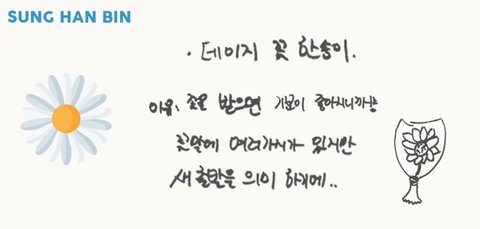 SUNG HAN BIN
· 데이지 꽃 한송이.
이유: 꽃을 받으면 기분이 좋아지니까
꽃말에 여러가지가 있지만
새출발을 의미 하기에..